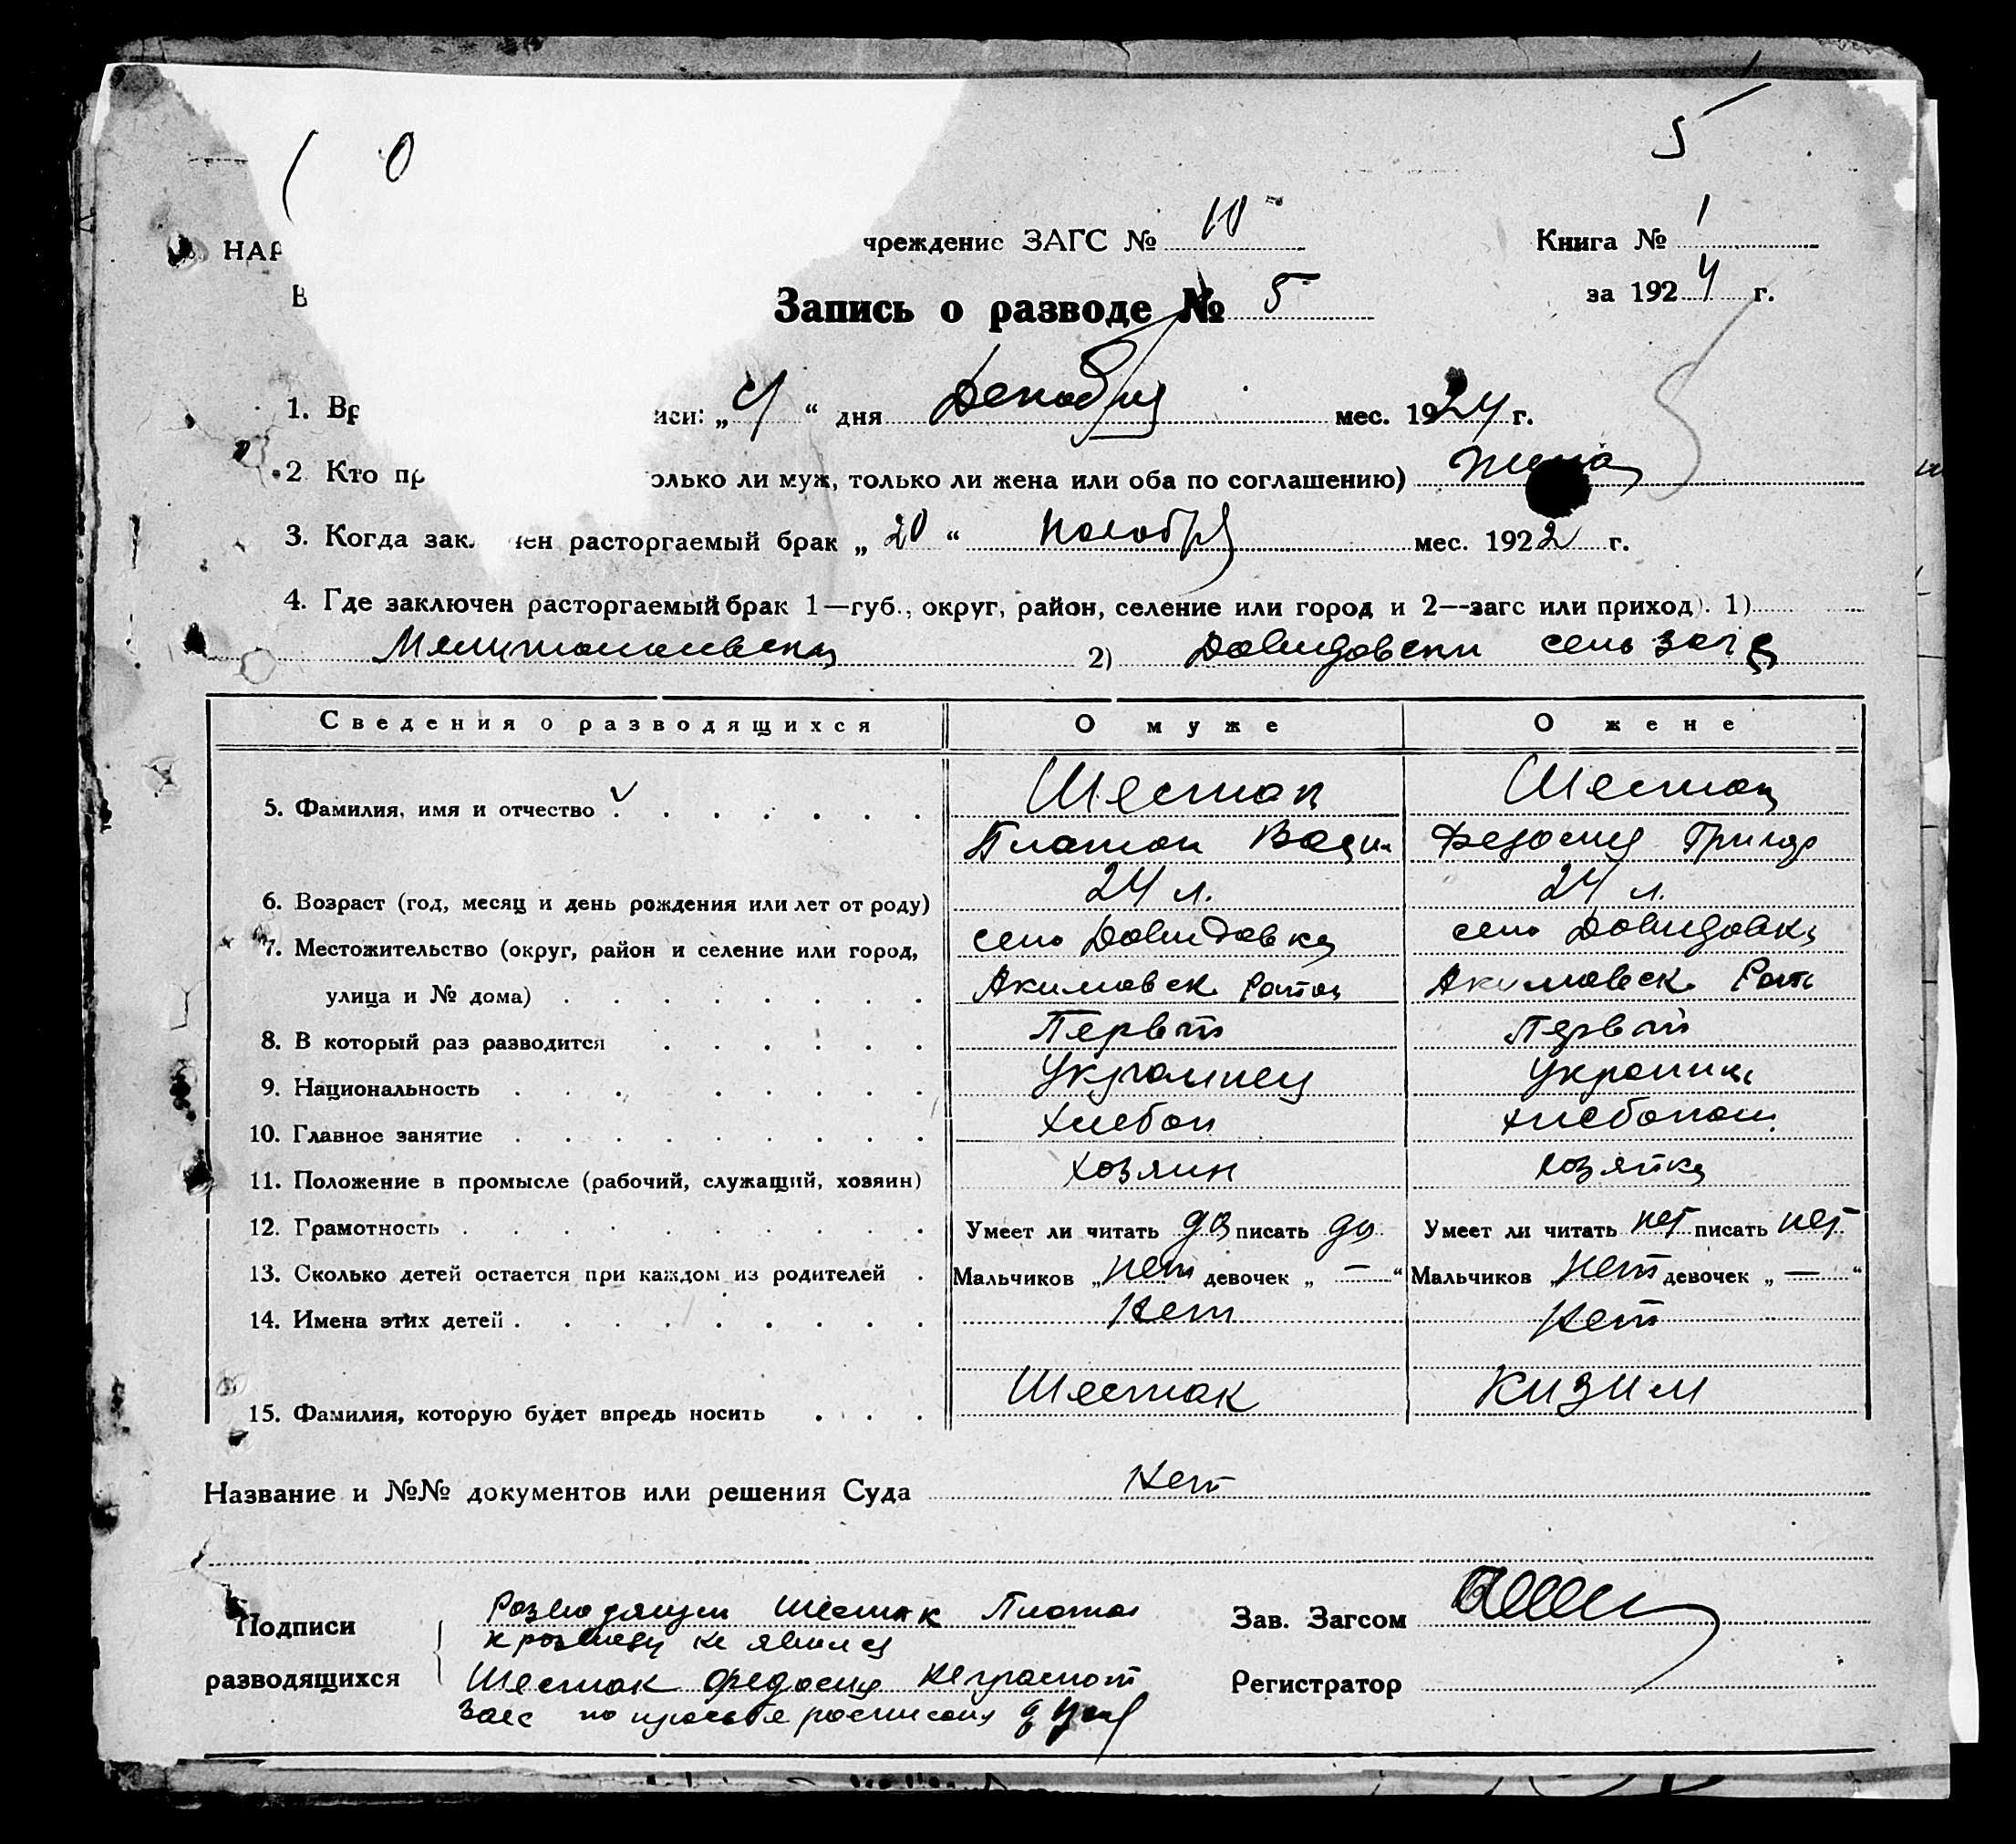 0 5
НАР чреждение ЗАГС № 10 Книга № 1
В Запись о разводе № 5 за 1924 г.
1. Вр иси: „4“ дня Декабря мес. 1924 г.
2 Кто пр олько ли муж, только ли жена или оба по соглашению) жена
3. Когда зак чен расторгаемый брак „20“ ноября мес. 1922 г.
4. Где заключен расторгаемый брак 1—губ., округ, район, селение или город и 2—загс или приход). 1)
2) Довидовски сельзагс
Сведения о разводящихся О муже О жене
5. Фамилия, имя и отчество Шестак Шестак
Платон Васи Федосия Григор
6. Возраст (год, месяц и день рождения или лет от роду) 24 л. 24 л.
7. Местожительство (округ, район и селение или город, село Довидовка село Довидовка
улица и № дома) Акимовск. Район Акимовск. Райн
8. В который раз разводится Первый Первый
9. Национальность Украинец Украинк
10. Главное занятие Хлебоп Хлебопаш
11. Положение в промысле (рабочий, служащий, хозяин) Хозяин Хозяйка
12. Грамотность Умеет ли читать да писать да Умеет ли читать нет писать нет
13. Сколько детей остается при каждом из родителей Мальчиков „нет девочек „—“ Мальчиков „нет девочек „—“
14. Имена этих детей Нет Нет
15. Фамилия, которую будет впредь носить Шестак Кизим
Название и №№ документов или решения Суда Нет
Подписи Разводящи Шестак Платон Зав. Загсом
к розводу не явился
разводящихся Шестак Федосия неграмот Регистратор
Загс по просьбе росписался